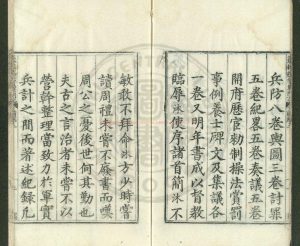 兵防八卷輿圖三卷討罪
五卷紀畧五卷奏議五卷
開府歷官勑制操法賞罰
事例養士碑文及集議各
一卷又明年書成以督教
臨辱沐使序諸首簡沐不
敏敢不拜命沐方少時嘗
讀周禮未嘗不廢書而嘆
周公之憂後世何其勤也
夫古之言治者未嘗不以
營幹整理當致力於軍實
兵計之間而著述紀錄凡